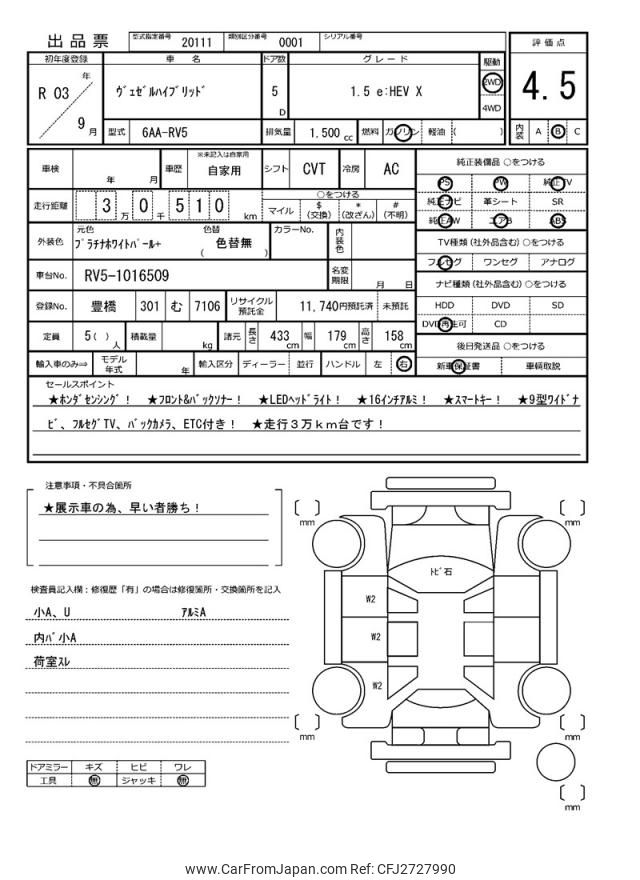 出品票 型式指定番号 20111 類別区分番号 0001 シリアル番号
初年度登録 車名 ドア数 グレード 駆動 評価点
R 03 年 9 月 ヴェゼルハイブリッド 5 D 1.5 e:HEV X 2WD 4WD 4.5
型式 6AA-RV5 排気量 1.500 cc 燃料 ガソリン 軽油 ( ) 内装 A B C
車検 年 月 車歴 ※未記入は自家用 自家用 シフト CVT 冷房 AC 純正装備品 ○をつける
PS PW 純正TV
純正ナビ 革シート SR
純正AW エアB ABS
走行距離 3 万 0 千 5 1 0 km ○をつける
マイル $ (交換) * (改ざん) # (不明)
外装色 元色 プラチナホワイトパール+ 色替 色替無 ( ) カラーNo. 内装色
TV種類 (社外品含む) ○をつける
フルセグ ワンセグ アナログ
車台No. RV5-1016509 名変期限 月 日
ナビ種類 (社外品含む) ○をつける
HDD DVD SD
DVD再生可 CD
登録No. 豊橋 301 む 7106 リサイクル預託金 11,740円預託済 未預託
定員 5 ( ) 人 積載量 kg 諸元 長さ 433 cm 幅 179 cm 高さ 158 cm
後日発送品 ○をつける
新車保証書 車輌取説
輸入車のみ⇒ モデル年式 年 輸入区分 ディーラー 並行 ハンドル 左 右
セールスポイント
★ホンダセンシング! ★フロント&バックソナー! ★LEDヘッドライト! ★16インチアルミ! ★スマートキー! ★9型ワイドナ
ビ、フルセグTV、バックカメラ、ETC付き! ★走行3万km台です!
注意事項・不具合箇所
★展示車の為、早い者勝ち!
検査員記入欄:修復歴「有」の場合は修復箇所・交換箇所を記入
小A、U アルミA
内バ小A
荷室スレ
ドアミラー キズ ヒビ ワレ
工具 無 ジャッキ 無
mm
mm
トビ石
W2
W2
W2
mm
mm
mm
www.CarFromJapan.com Ref: CFJ2727990